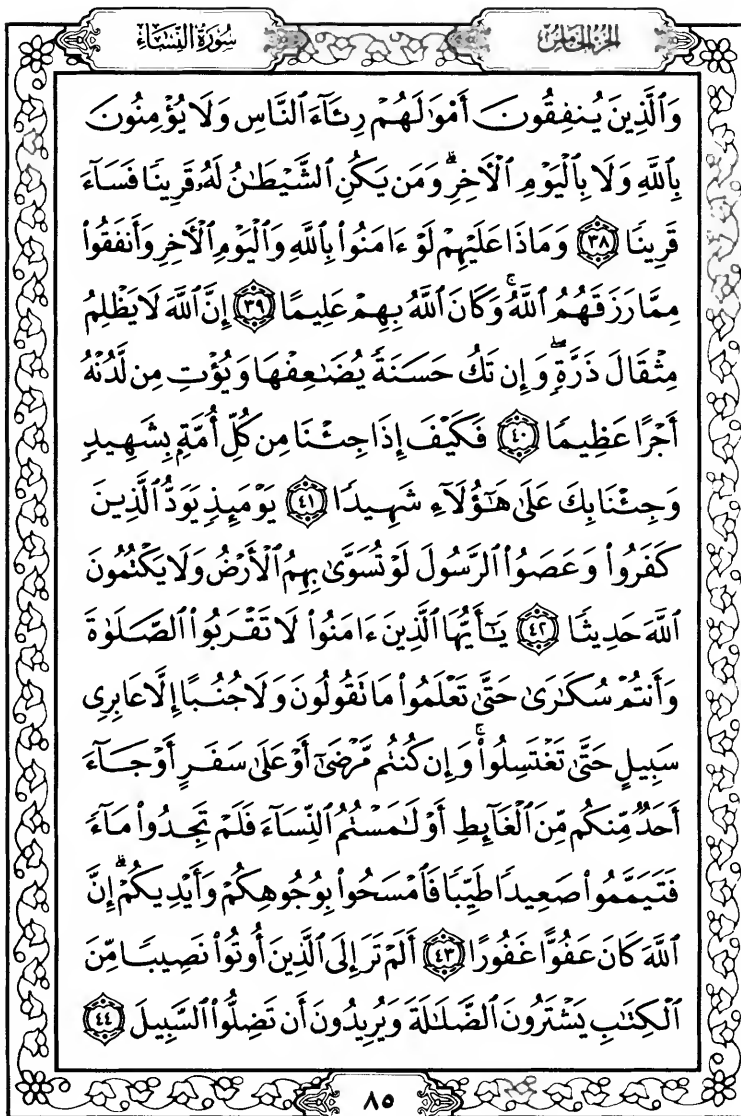 سُورَةُ النِّسَاءِ
الجزء الخامس
وَٱلَّذِينَ يُنفِقُونَ أَمْوَٰلَهُمْ رِئَآءَ ٱلنَّاسِ وَلَا يُؤْمِنُونَ
بِٱللَّهِ وَلَا بِٱلْيَوْمِ ٱلْأَخِرِ ۗ وَمَن يَكُنِ ٱلشَّيْطَٰنُ لَهُۥ قَرِينًا فَسَآءَ
قَرِينًا ﴿٣٨﴾ وَمَاذَا عَلَيْهِمْ لَوْ ءَامَنُوا۟ بِٱللَّهِ وَٱلْيَوْمِ ٱلْأَخِرِ وَأَنفَقُوا۟
مِمَّا رَزَقَهُمُ ٱللَّهُ ۚ وَكَانَ ٱللَّهُ بِهِمْ عَلِيمًا ﴿٣٩﴾ إِنَّ ٱللَّهَ لَا يَظْلِمُ
مِثْقَالَ ذَرَّةٍ ۖ وَإِن تَكُ حَسَنَةً يُضَٰعِفْهَا وَيُؤْتِ مِن لَّدُنْهُ
أَجْرًا عَظِيمًا ﴿٤٠﴾ فَكَيْفَ إِذَا جِئْنَا مِن كُلِّ أُمَّةٍۭ بِشَهِيدٍ
وَجِئْنَا بِكَ عَلَىٰ هَٰٓؤُلَآءِ شَهِيدًا ﴿٤١﴾ يَوْمَئِذٍ يَوَدُّ ٱلَّذِينَ
كَفَرُوا۟ وَعَصَوُا۟ ٱلرَّسُولَ لَوْ تُسَوَّىٰ بِهِمُ ٱلْأَرْضُ وَلَا يَكْتُمُونَ
ٱللَّهَ حَدِيثًا ﴿٤٢﴾ يَٰٓأَيُّهَا ٱلَّذِينَ ءَامَنُوا۟ لَا تَقْرَبُوا۟ ٱلصَّلَوٰةَ
وَأَنتُمْ سُكَٰرَىٰ حَتَّىٰ تَعْلَمُوا۟ مَا تَقُولُونَ وَلَا جُنُبًا إِلَّا عَابِرِى
سَبِيلٍ حَتَّىٰ تَغْتَسِلُوا۟ ۚ وَإِن كُنتُم مَّرْضَىٰٓ أَوْ عَلَىٰ سَفَرٍ أَوْ جَآءَ
أَحَدٌ مِّنكُم مِّنَ ٱلْغَآئِطِ أَوْ لَٰمَسْتُمُ ٱلنِّسَآءَ فَلَمْ تَجِدُوا۟ مَآءً
فَتَيَمَّمُوا۟ صَعِيدًا طَيِّبًا فَٱمْسَحُوا۟ بِوُجُوهِكُمْ وَأَيْدِيكُمْ ۗ إِنَّ
ٱللَّهَ كَانَ عَفُوًّا غَفُورًا ﴿٤٣﴾ أَلَمْ تَرَ إِلَى ٱلَّذِينَ أُوتُوا۟ نَصِيبًا مِّنَ
ٱلْكِتَٰبِ يَشْتَرُونَ ٱلضَّلَٰلَةَ وَيُرِيدُونَ أَن تَضِلُّوا۟ ٱلسَّبِيلَ ﴿٤٤﴾
٨٥